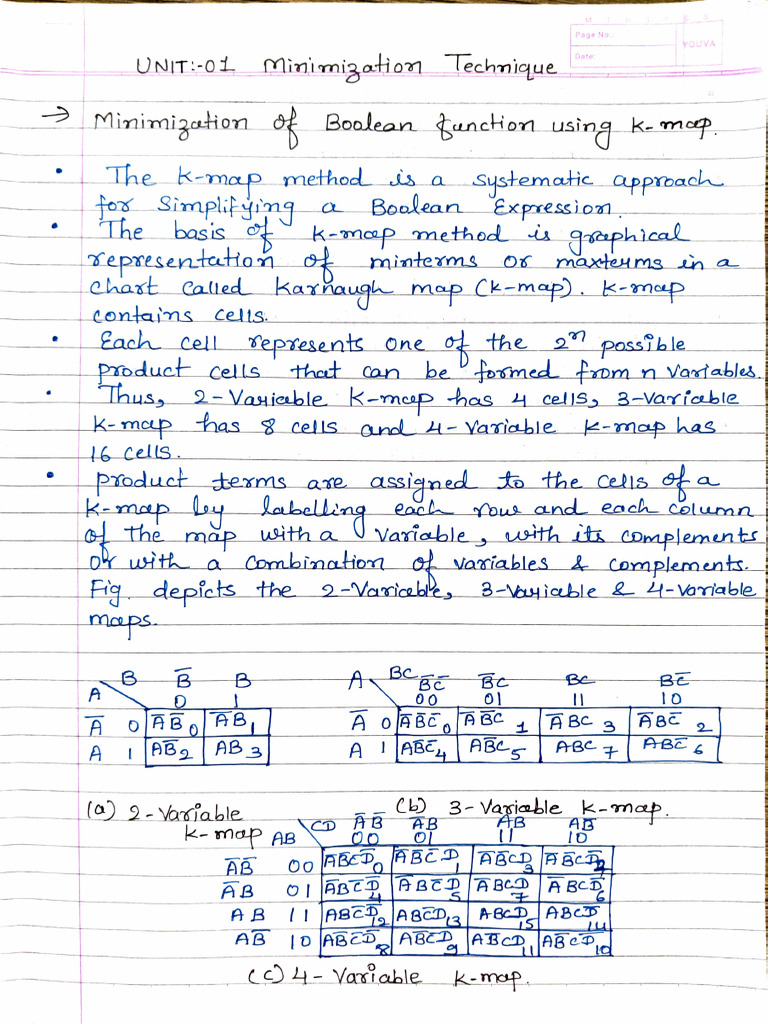 MINIBS
Page No.:
Date:
YOUVA
UNIT:-01 Minimization Technique
→ Minimization of Boolean function using K-map.
• The K-map method is a systematic approach
for Simplifying a Boolean Expression.
• The basis of K-map method is graphical
representation of minterms or maxterms in a
chart called Karnaugh map (K-map). K-map
contains cells.
• Each cell represents one of the 2ⁿ possible
product cells that can be formed from n variables.
• Thus, 2-Variable K-map has 4 cells, 3-variable
K-map has 8 cells and 4-variable K-map has
16 cells.
• product terms are assigned to the cells of a
K-map by labelling each row and each column
of the map with a variable, with its complements
or with a combination of variables & complements.
Fig. depicts the 2-Variable, 3-Variable & 4-Variable
maps.
B B̅ B
A 0 1
A̅ 0 A̅B̅ 0 A̅B 1
A 1 AB̅ 2 AB 3
(a) 2-Variable
K-map
A BC B̅C̅ B̅C BC BC̅
00 01 11 10
A̅ 0 A̅B̅C̅ 0 A̅B̅C 1 A̅BC 3 A̅BC̅ 2
A 1 AB̅C̅ 4 AB̅C 5 ABC 7 ABC̅ 6
(b) 3-Variable K-map.
CD A̅B̅ A̅B AB AB̅
AB 00 01 11 10
A̅B̅ 00 A̅B̅C̅D̅ 0 A̅B̅C̅D 1 A̅B̅CD 3 A̅B̅CD̅ 2
A̅B 01 A̅BC̅D̅ 4 A̅BC̅D 5 A̅BCD 7 A̅BCD̅ 6
AB 11 ABC̅D̅ 12 ABC̅D 13 ABCD 15 ABCD̅ 14
AB̅ 10 AB̅C̅D̅ 8 AB̅C̅D 9 AB̅CD 11 AB̅CD̅ 10
(c) 4-Variable K-map.